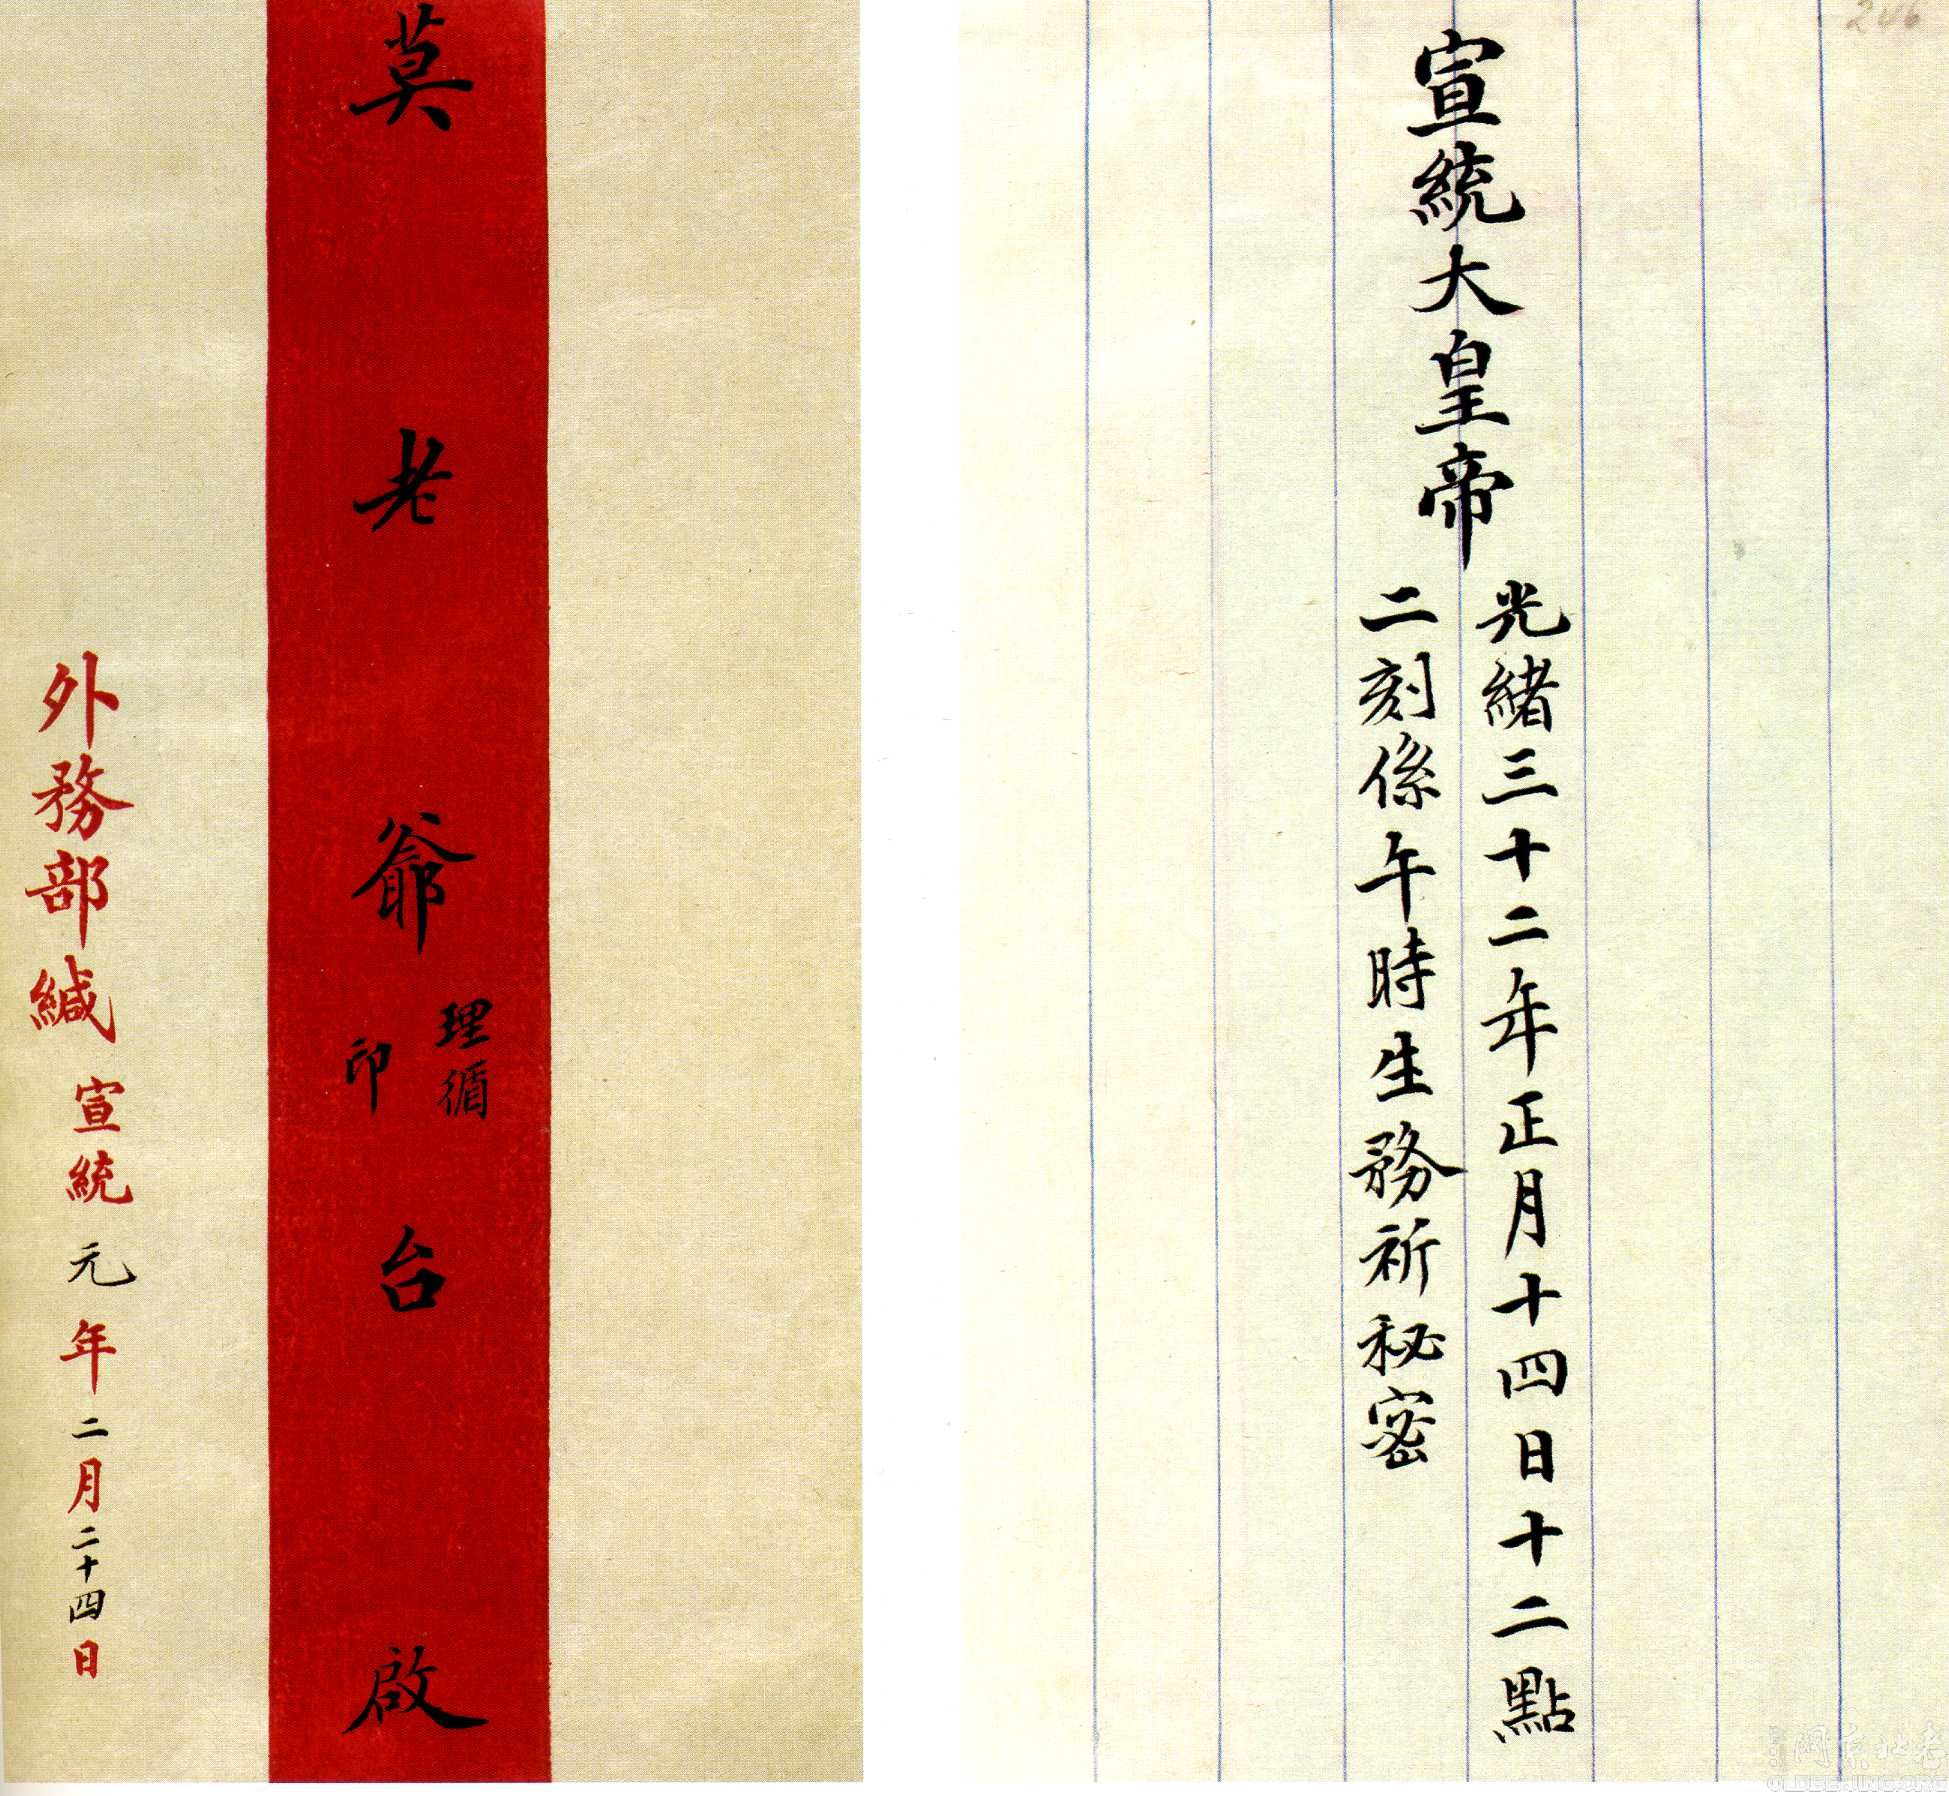 莫老爺印理循台啟
外務部緘宣統元年二月二十四日
246
宣統大皇帝
光緒三十二年正月十四日十二點
二刻係午時生務祈秘密
老北京网
OLDBEIJING.ORG